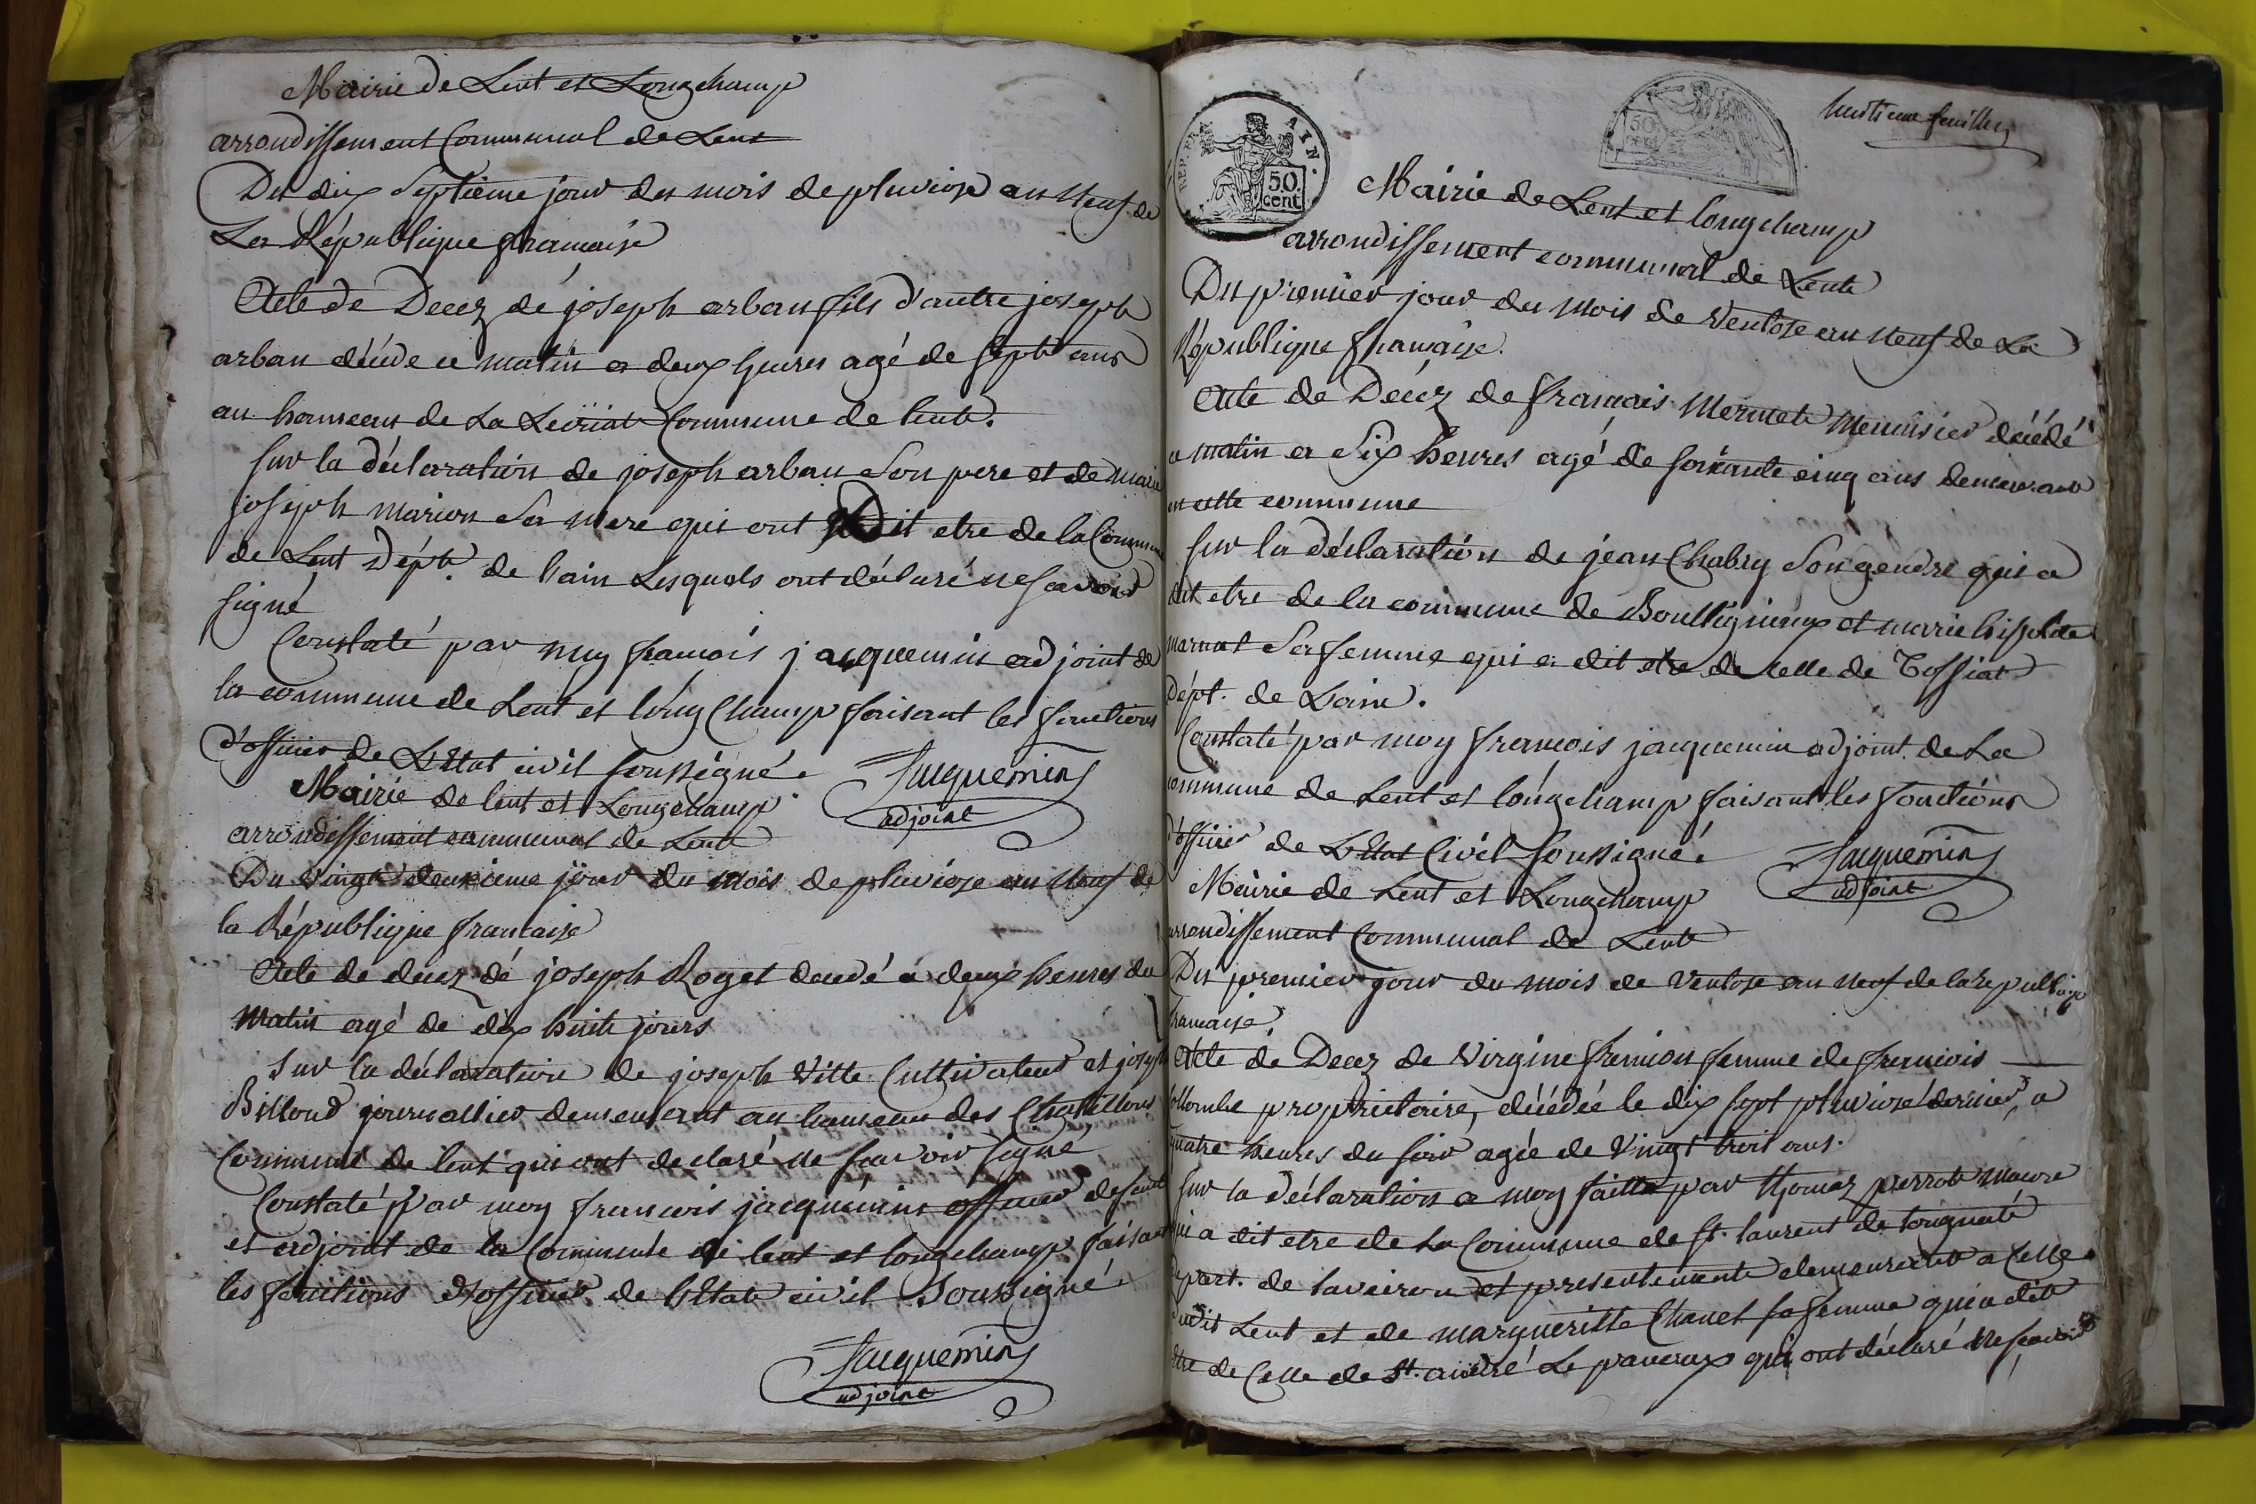 Mairie de Lent et Longchamp
arrondissement Communal de Lent
Du dix Septieme jour du mois de pluviose an Neuf de
La République francaise
Acte de Decez de joseph arban fils d'autre joseph
arban décédé ce matin a deux heures agé de Sept ans
au hameau de La Leviiat Commune de lent.
Sur la déclaration de joseph arban Son pere et de marie
joseph marion Sa mere qui ont dit etre de la Commune
de Lent Dépt. de hain Lesquels ont déclaré ne Savoir
signé
Constaté par moy francois jacquemin adjoint de
la commune de Lent et longChamp faisant les fonctions
d'officier de L'Etat civil soussigné.
Jacquemin
adjoint
Mairie de lent et Longchamp
arrondissement communal de Lent
Du vingt deuxieme jour du mois de pluviose an Neuf de
la République francaise
Acte de decez de joseph Roget decedé a deux heures du
matin agé de dix huit jours
Sur la déclaration de joseph Vitte Cultivateur et joseph
Billoud journallier demeurant au hameau des Chatillons
Commune de lent qui ont declaré ne Savoir signé
Constaté par moy francois jacquemin
et adjoint de la Commune de lent et longchamp faisant
les fonctions d'officier de l'Etat civil Soussigné
Jacquemin
adjoint
REP. FRA AIN.
50.
cent
50
huitieme feuillet
Mairie de Lent et longchamp
arrondissement communal de Lent
Du premier jour du mois de Ventose an Neuf de La
République francaise.
Acte de Decéz de francois Mermet Menuisier décédé
ce matin a Six heures agé de soixante cinq ans demeurant
en cette commune
Sur la déclaration de jean Chabry Son gendre qui a
dit etre de la commune de Boulligneux et marie hipolite
marmet Sa femme qui a dit etre de celle de Tossiat
Dépt. de Lain.
Constaté par moy francois jacquemin adjoint de La
commune de Lent et longchamp faisant les fonctions
d'officier de L'Etat Civil soussigné.
Jacquemin
adjoint
Mairie de Lent et Longchamp
arrondissement Communal de Lent
Du premier jour du mois de Ventose an Neuf de la Republique
francaise.
Acte de Decez de Virgine fremion femme de francois
Collombe proprietaire, décédée le dix sept pluviose dernier, a
quatre heures du soir agée de Vingt trois ans.
Sur la déclaration a moy faitte par thomaz perrot
qui a dit etre de La Commune de St. laurent de
depart. de laveiron et presentement demeurant a Celle
dudit Lent et de margueritte Chanel sa femme qui a dit
etre de Celle de St. andré Le panoux qui ont déclaré ne Savoir